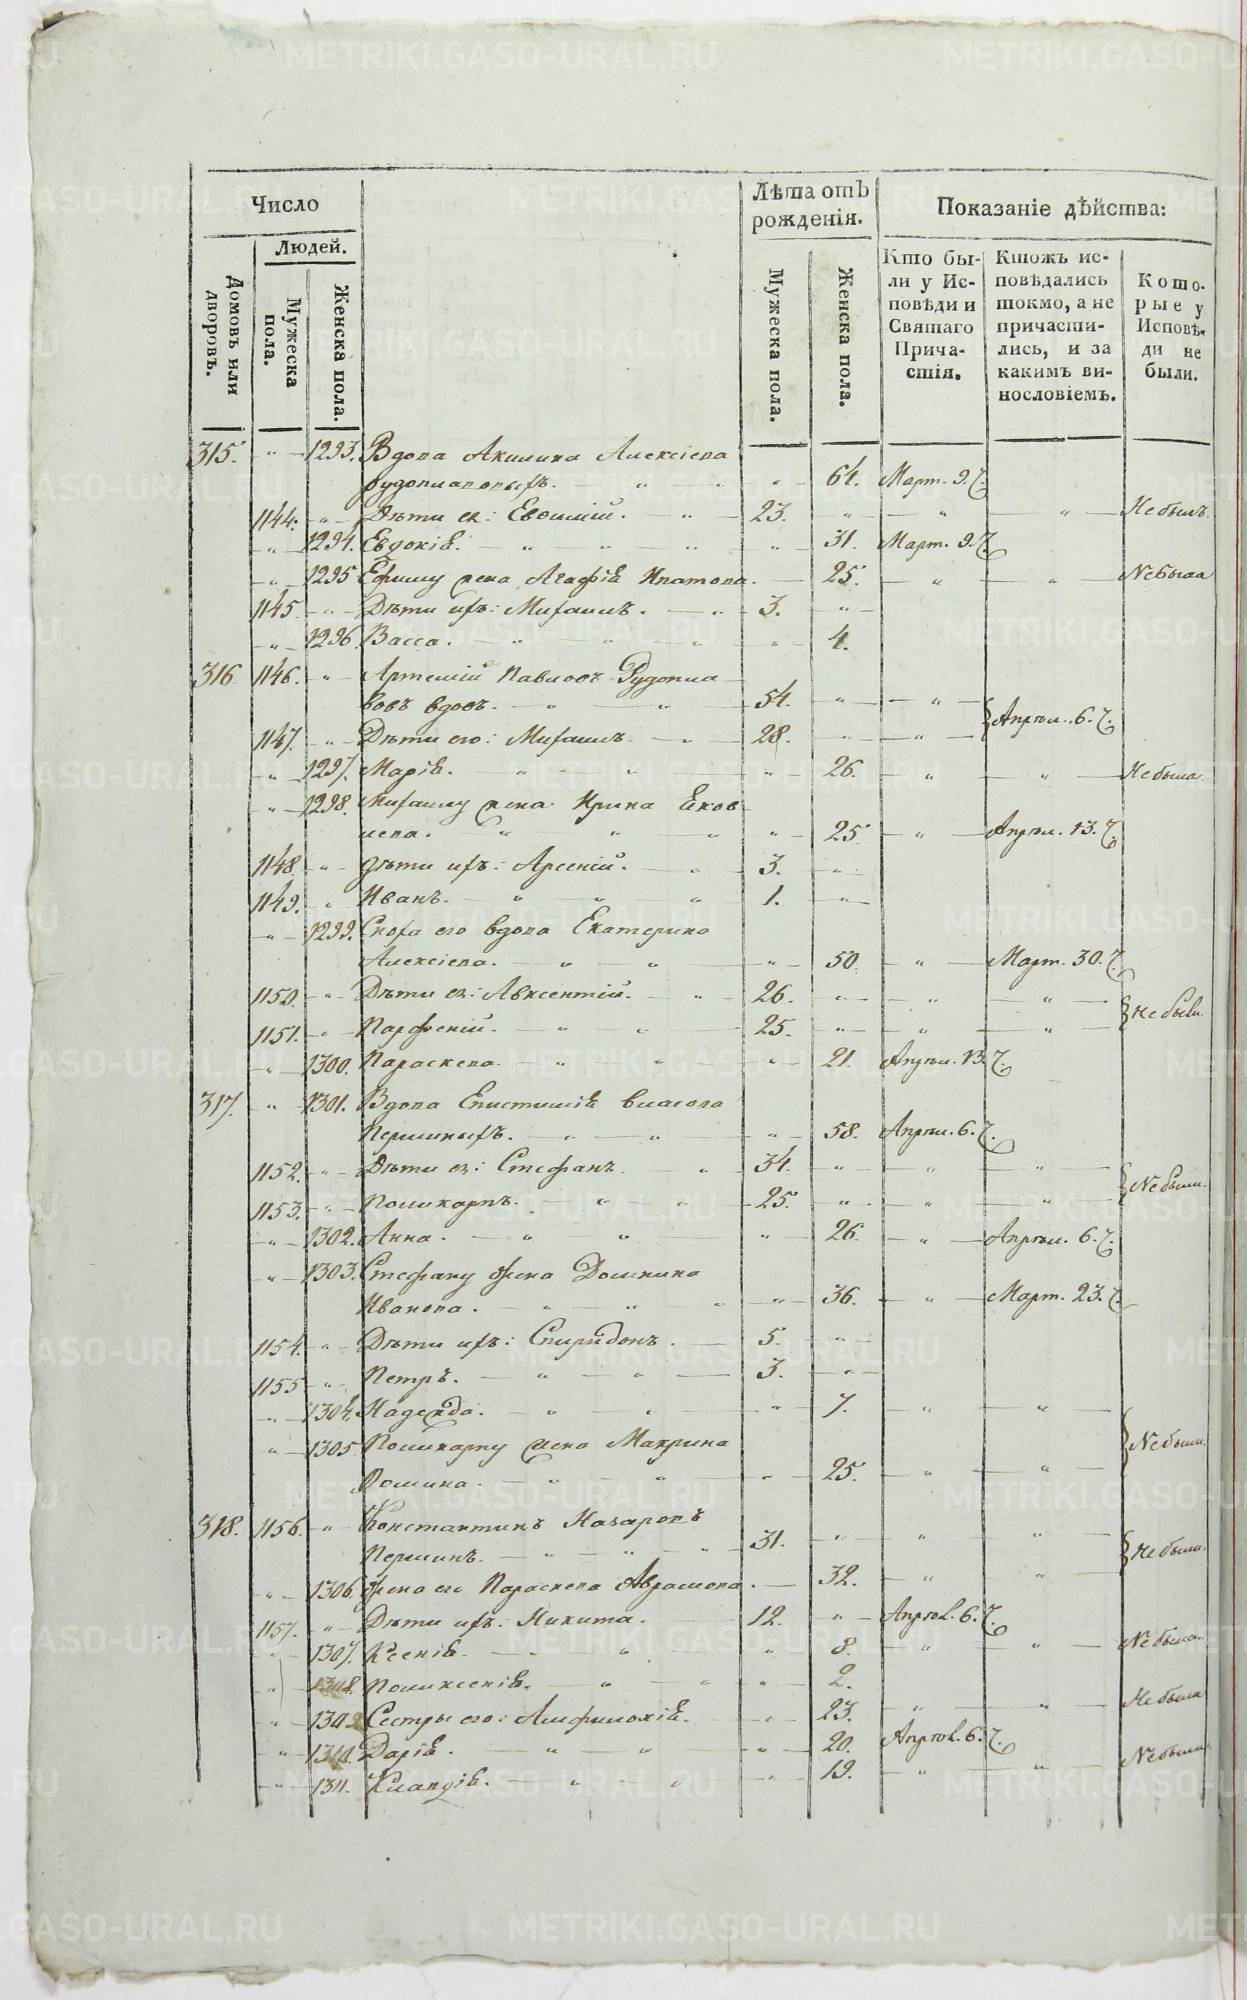 Число
Людей.
Домовъ или дворовъ.
Мужеска пола.
Женска пола.
Лѣта отъ рожденія.
Мужеска пола.
Женска пола.
Показаніе дѣйства:
Кто были у Исповѣди и Святаго Причастія.
Ктожъ исповѣдались токмо, а не причастились, и за какимъ винословіемъ.
Которые у Исповѣди не были.
315. " 1293. Вдова Акилина Алексіева
Рудоплавовыхъ. " " 64. Март. 9.
1144. " Дѣти ея: Евѳимій. " 23. " " " Не былъ.
" 1294. Евдокія. " " " " 31. Март. 9.
" 1295 Ефиму жена Агафія Ипатова. 25. " " Не была
1145 " Дѣти ихъ: Михаилъ. " 3. "
" 1296. Васса. " " " " 4.
316. 1146. " Артемій Павловъ Рудопла
вовъ вдовъ. " " 54. " " Апрѣл. 6.
1147. " Дѣти его: Михаилъ. " 28. " "
" 1297. Марія. " " " " 26. " " Не была
" 1298. Михаилу жена Ирина Еков
лева. " " " " 25. " Апрѣл. 13.
1148. " дѣти ихъ: Арсеній. " 3. "
1149. " Иванъ. " " " 1. "
" 1299. Сноха его вдова Екатерина
Алексіева. " " " 50. " Март. 30.
1150. " Дѣти ея: Авксентій. " 26. " " " Не были.
1151. " Парфеній. " " 25. " " "
" 1300. Параскева. " " " 21. Апрѣл. 13.
317. " 1301. Вдова Епистимія Власова
Першиныхъ. " " " 58. Апрѣл. 6.
1152. " Дѣти ея: Стефанъ. " 34. " " " Не были.
1153. " Поликарпъ. " " 25. " " "
" 1302. Анна. " " " 26. " Апрѣл. 6.
" 1303. Стефану жена Домнина
Иванова. " " " " 36. " Март. 23.
1154. " Дѣти ихъ: Спиридонъ. 5. "
1155 " Петръ. " " 3. "
" 1304. Надежда. " " " 7. " "
" 1305 Поликарпу жена Макрина Не были.
Фомина. " " " 25. " "
318. 1156. " Константинъ Назаровъ
Першинъ. " " " 31. " " " Не были.
" 1306. Жена его Параскева Аврамова. 32. " "
1157. " Дѣти ихъ: Никита. 12. " Апрѣл. 6.
" 1307. Ксенія. " " " 8. " " Не была.
" 1308. Поликсенія. " " " 2.
" 1309 Сестры его: Алфимокія. " 23. " " Не была
" 1310. Дарія. " " " 20. Апрѣл. 6.
" 1311. Клавдія. " " " 19. " " Не была
METRIKI.GASO-URAL.RU